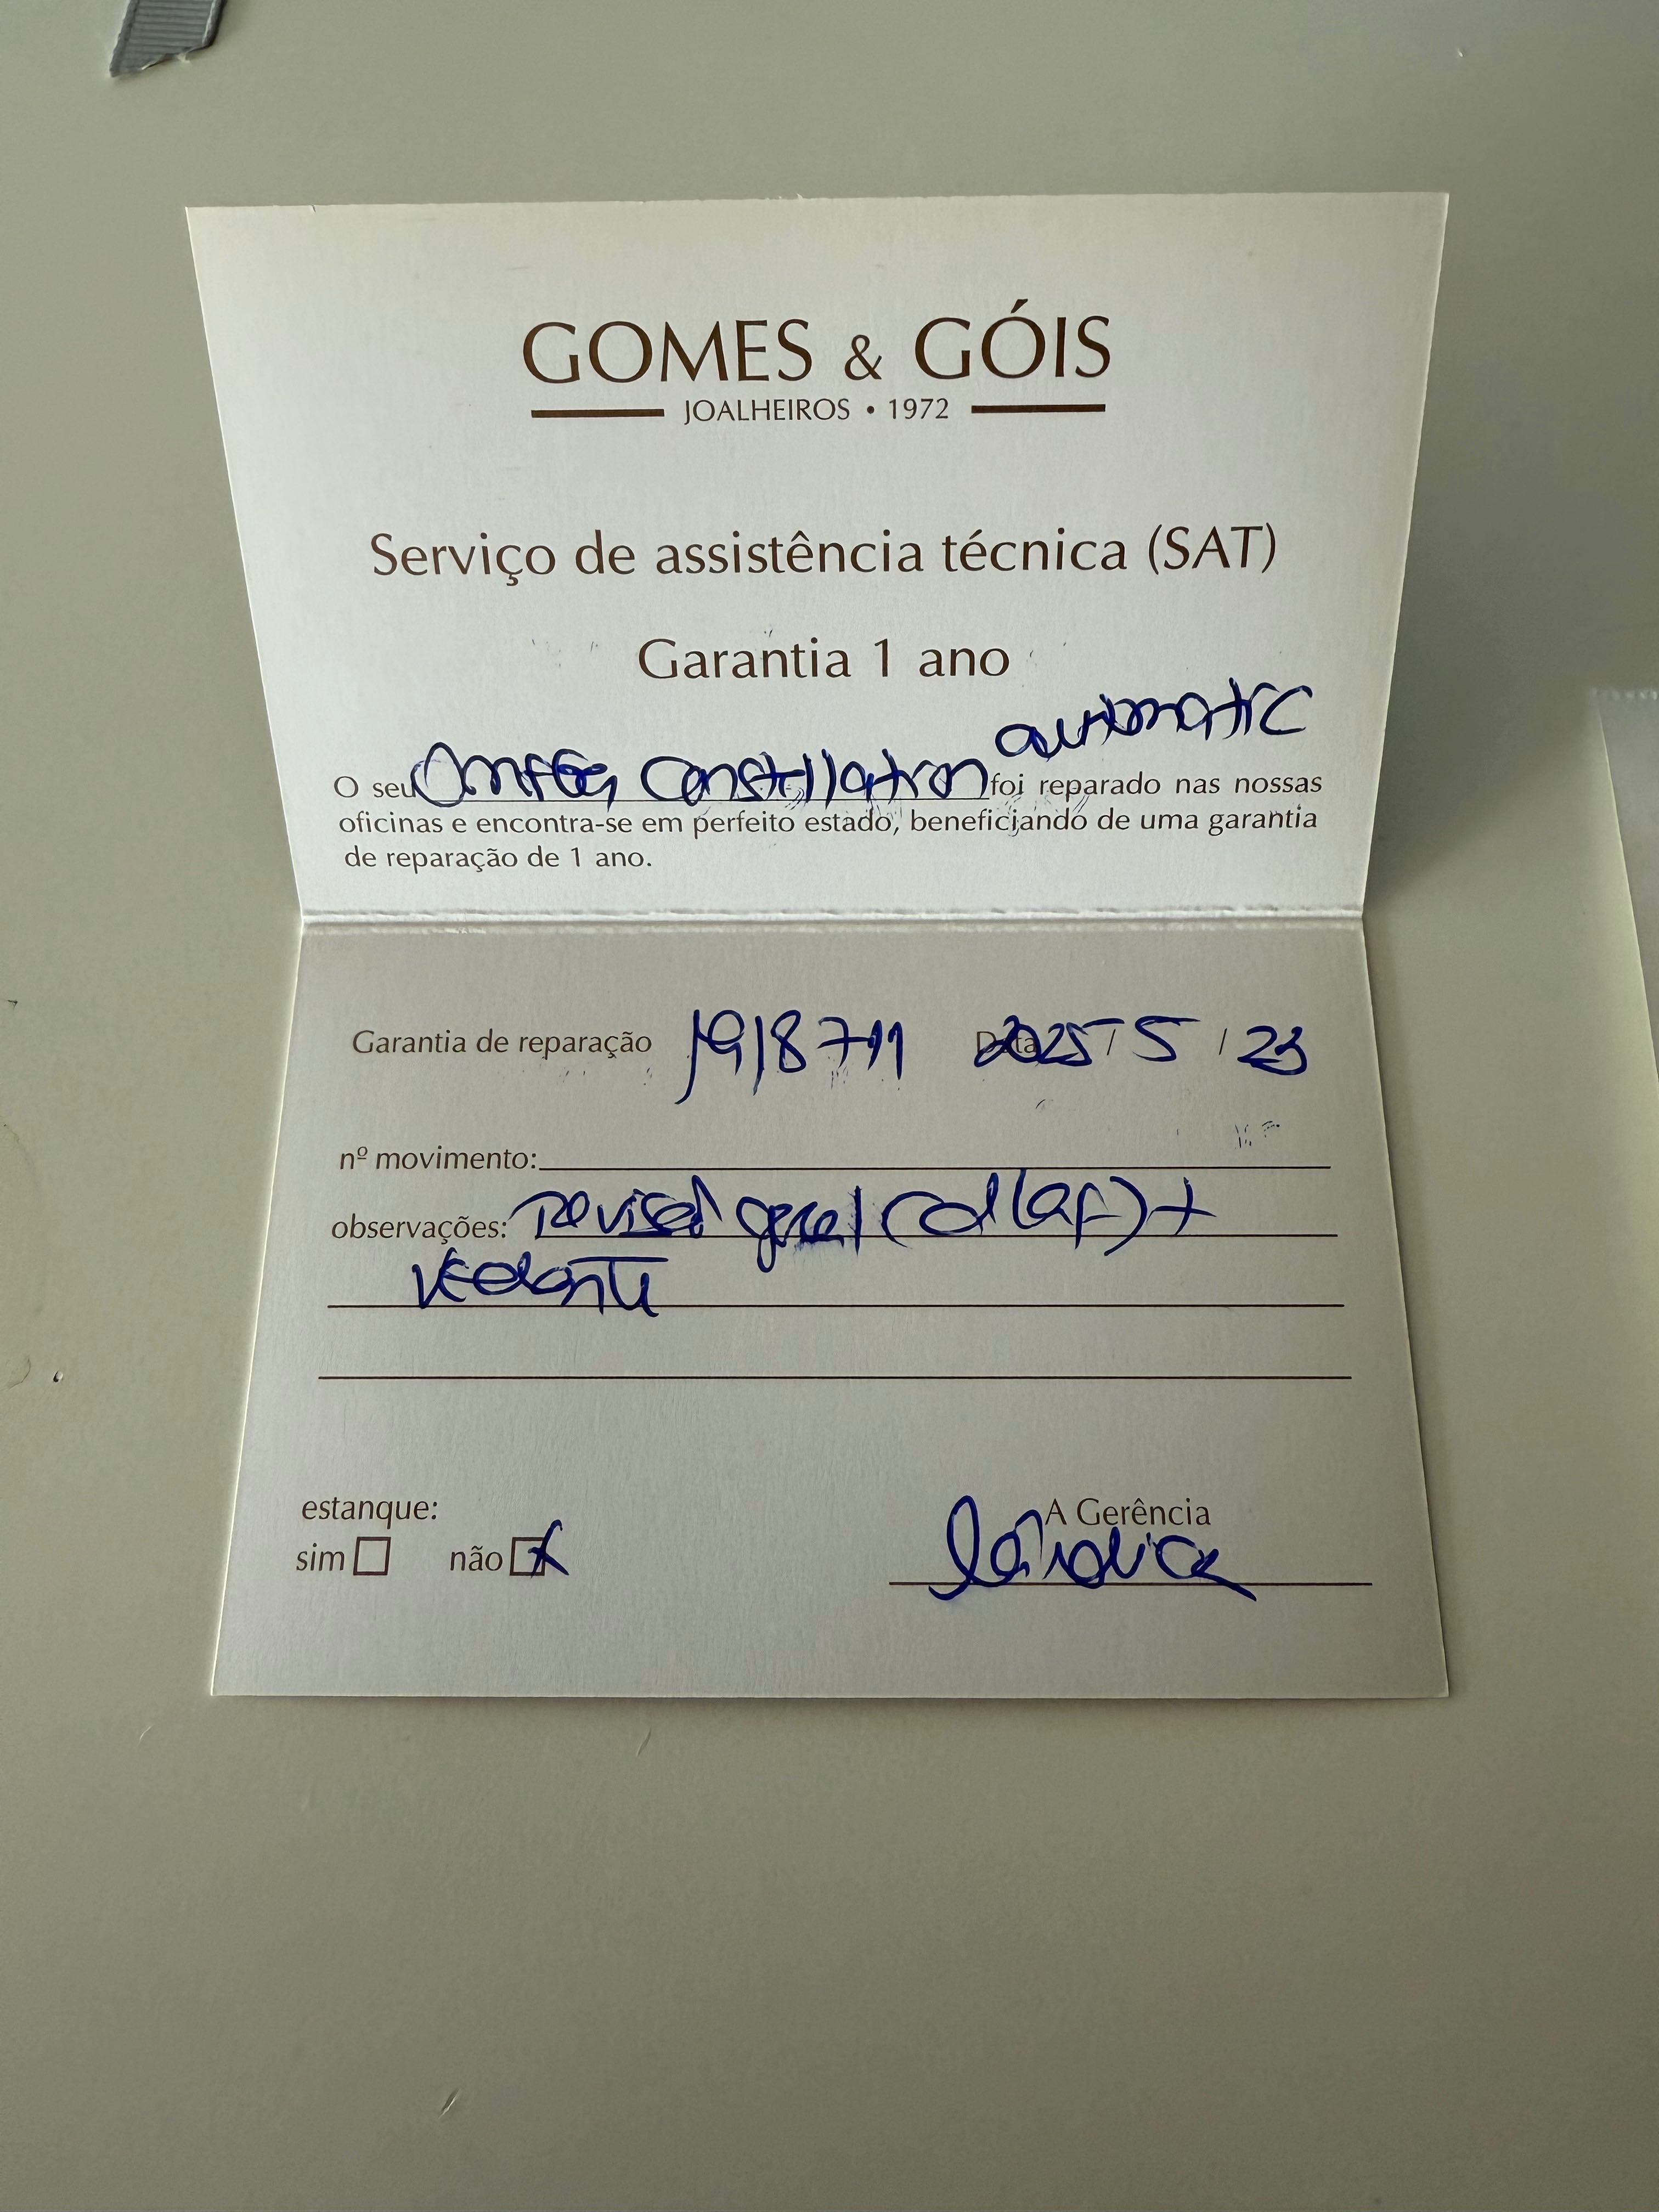 GOMES & GÓIS
JOALHEIROS • 1972
Serviço de assistência técnica (SAT)
Garantia 1 ano
automatic
O seu Omega Constellation foi reparado nas nossas
oficinas e encontra-se em perfeito estado, beneficiando de uma garantia
de reparação de 1 ano.
Garantia de reparação Data 2025 / 5 / 23
nº movimento:
observações: revisão geral +
vedante
estanque:
A Gerência
sim não X